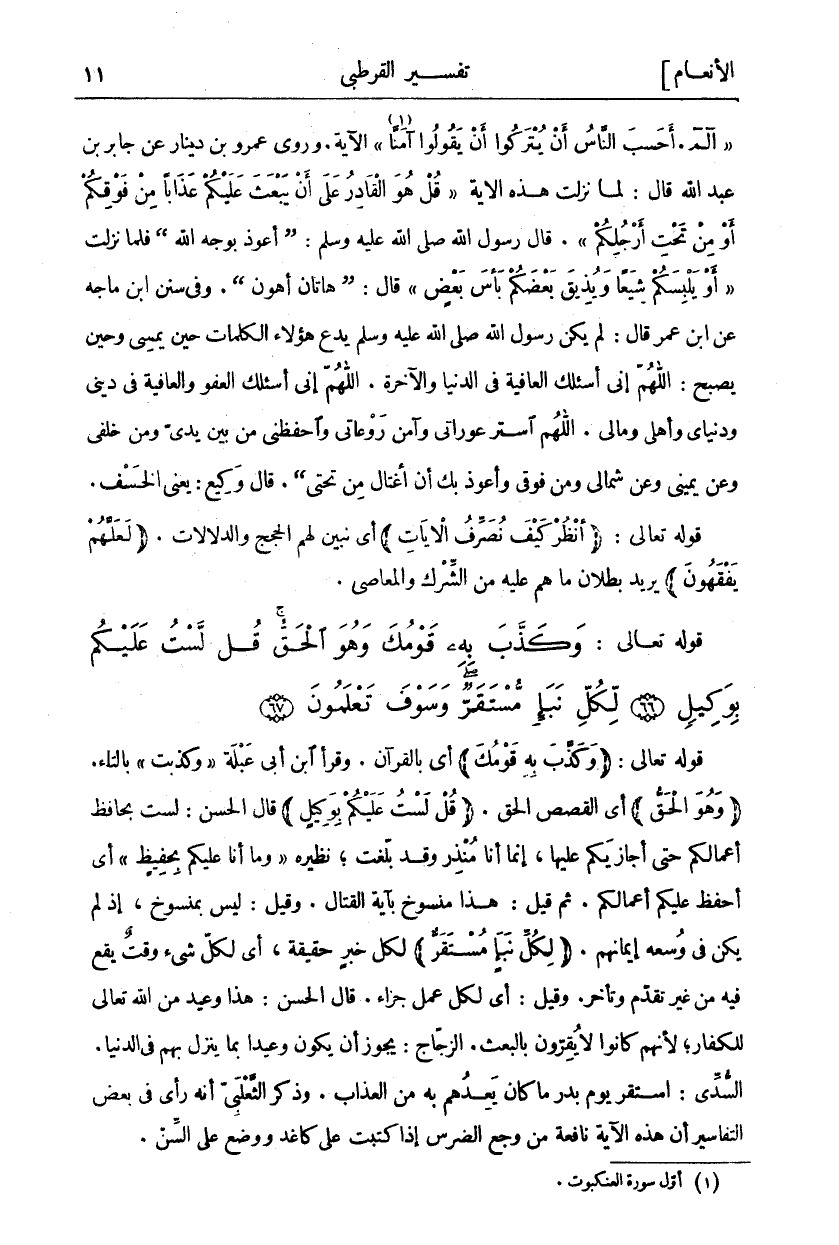 الأنعام ] تفسير القرطبى ١١
« الٓمٓ . أَحَسِبَ النَّاسُ أَنْ يُتْرَكُوا أَنْ يَقُولُوا آمَنَّا (١) » الآية . وروى عمرو بن دينار عن جابر بن
عبد الله قال : لما نزلت هذه الاية « قُلْ هُوَ الْقَادِرُ عَلَى أَنْ يَبْعَثَ عَلَيْكُمْ عَذَاباً مِنْ فَوْقِكُمْ
أَوْ مِنْ تَحْتِ أَرْجُلِكُمْ » . قال رسول الله صلى الله عليه وسلم : ” أعوذ بوجه الله “ فلما نزلت
« أَوْ يَلْبِسَكُمْ شِيَعًا وَيُذِيقَ بَعْضَكُمْ بَأْسَ بَعْضٍ » قال : ” هاتان أهون “ . وفى سنن ابن ماجه
عن ابن عمر قال : لم يكن رسول الله صلى الله عليه وسلم يدع هؤلاء الكلمات حين يمسى وحين
يصبح : اللّٰهُمّ إنى أسئلك العافية فى الدنيا والآخرة . اللّٰهُمّ إنى أسئلك العفو والعافية فى دينى
ودنياى وأهلى ومالى . اللّٰهُم ٱستر عوراتى وآمن رَوْعاتى وٱحفظنى من بين يدىّ ومن خلفى
وعن يمينى وعن شمالى ومن فوقى وأعوذ بك أن أُغتال مِن تحتى“ . قال وَكِيع : يعنى الخَسْف .
قوله تعالى : ﴿ ٱنْظُرْ كَيْفَ نُصَرِّفُ الْآيَاتِ ﴾ أى نبين لهم الحجج والدلالات . ﴿ لَعَلَّهُمْ
يَفْقَهُونَ ﴾ يريد بطلان ما هم عليه من الشِّرك والمعاصى .
قوله تعـالى : وَكَذَّبَ بِهِۦ قَوْمُكَ وَهُوَ ٱلْحَقُّ ۚ قُل لَّسْتُ عَلَيْكُم
بِوَكِيلٍ ﴿٦٦﴾ لِّكُلِّ نَبَإٍ مُّسْتَقَرٌّ ۖ وَسَوْفَ تَعْلَمُونَ ﴿٦٧﴾
قوله تعالى : ﴿ وَكَذَّبَ بِهِ قَوْمُكَ ﴾ أى بالقرآن . وقرأ ٱبن أبى عَبْلَة « وكذبت » بالتاء .
﴿ وَهُوَ الْحَقُّ ﴾ أى القصص الحق . ﴿ قُلْ لَسْتُ عَلَيْكُمْ بِوَكِيلٍ ﴾ قال الحسن : لست بحافظ
أعمالكم حتى أجازيَكم عليها ، إنما أنا مُنْذِر وقد بلّغت ؛ نظيره « وما أنا عليكم بِحفِيظ » أى
أحفظ عليكم أعمالكم . ثم قيل : هـذا منسوخ بآية القتال . وقيل : ليس بمنسوخ ، إذ لم
يكن فى وُسعه إيمانهم . ﴿ لِكُلِّ نَبَإٍ مُسْتَقَرٌّ ﴾ لكل خبرٍ حقيقة ، أى لكلّ شىء وقتٌ يقع
فيه من غير تقدّم وتأخر . وقيل : أى لكل عمل جزاء . قال الحسن : هذا وعيد من الله تعالى
للكفار؛ لأنهم كانوا لايُقِرّون بالبعث . الزجّاج : يجوز أن يكون وعيدا بما ينزل بهم فى الدنيا .
السُّدِّى : استقر يوم بدر ما كان يَعِدُهم به من العذاب . وذكر الثَّعْلَبىّ أنه رأى فى بعض
التفاسير أن هذه الآية نافعة من وجع الضرس إذا كتبت على كاغد ووضع على السِّنّ .
(١) أوّل سورة العنكبوت .